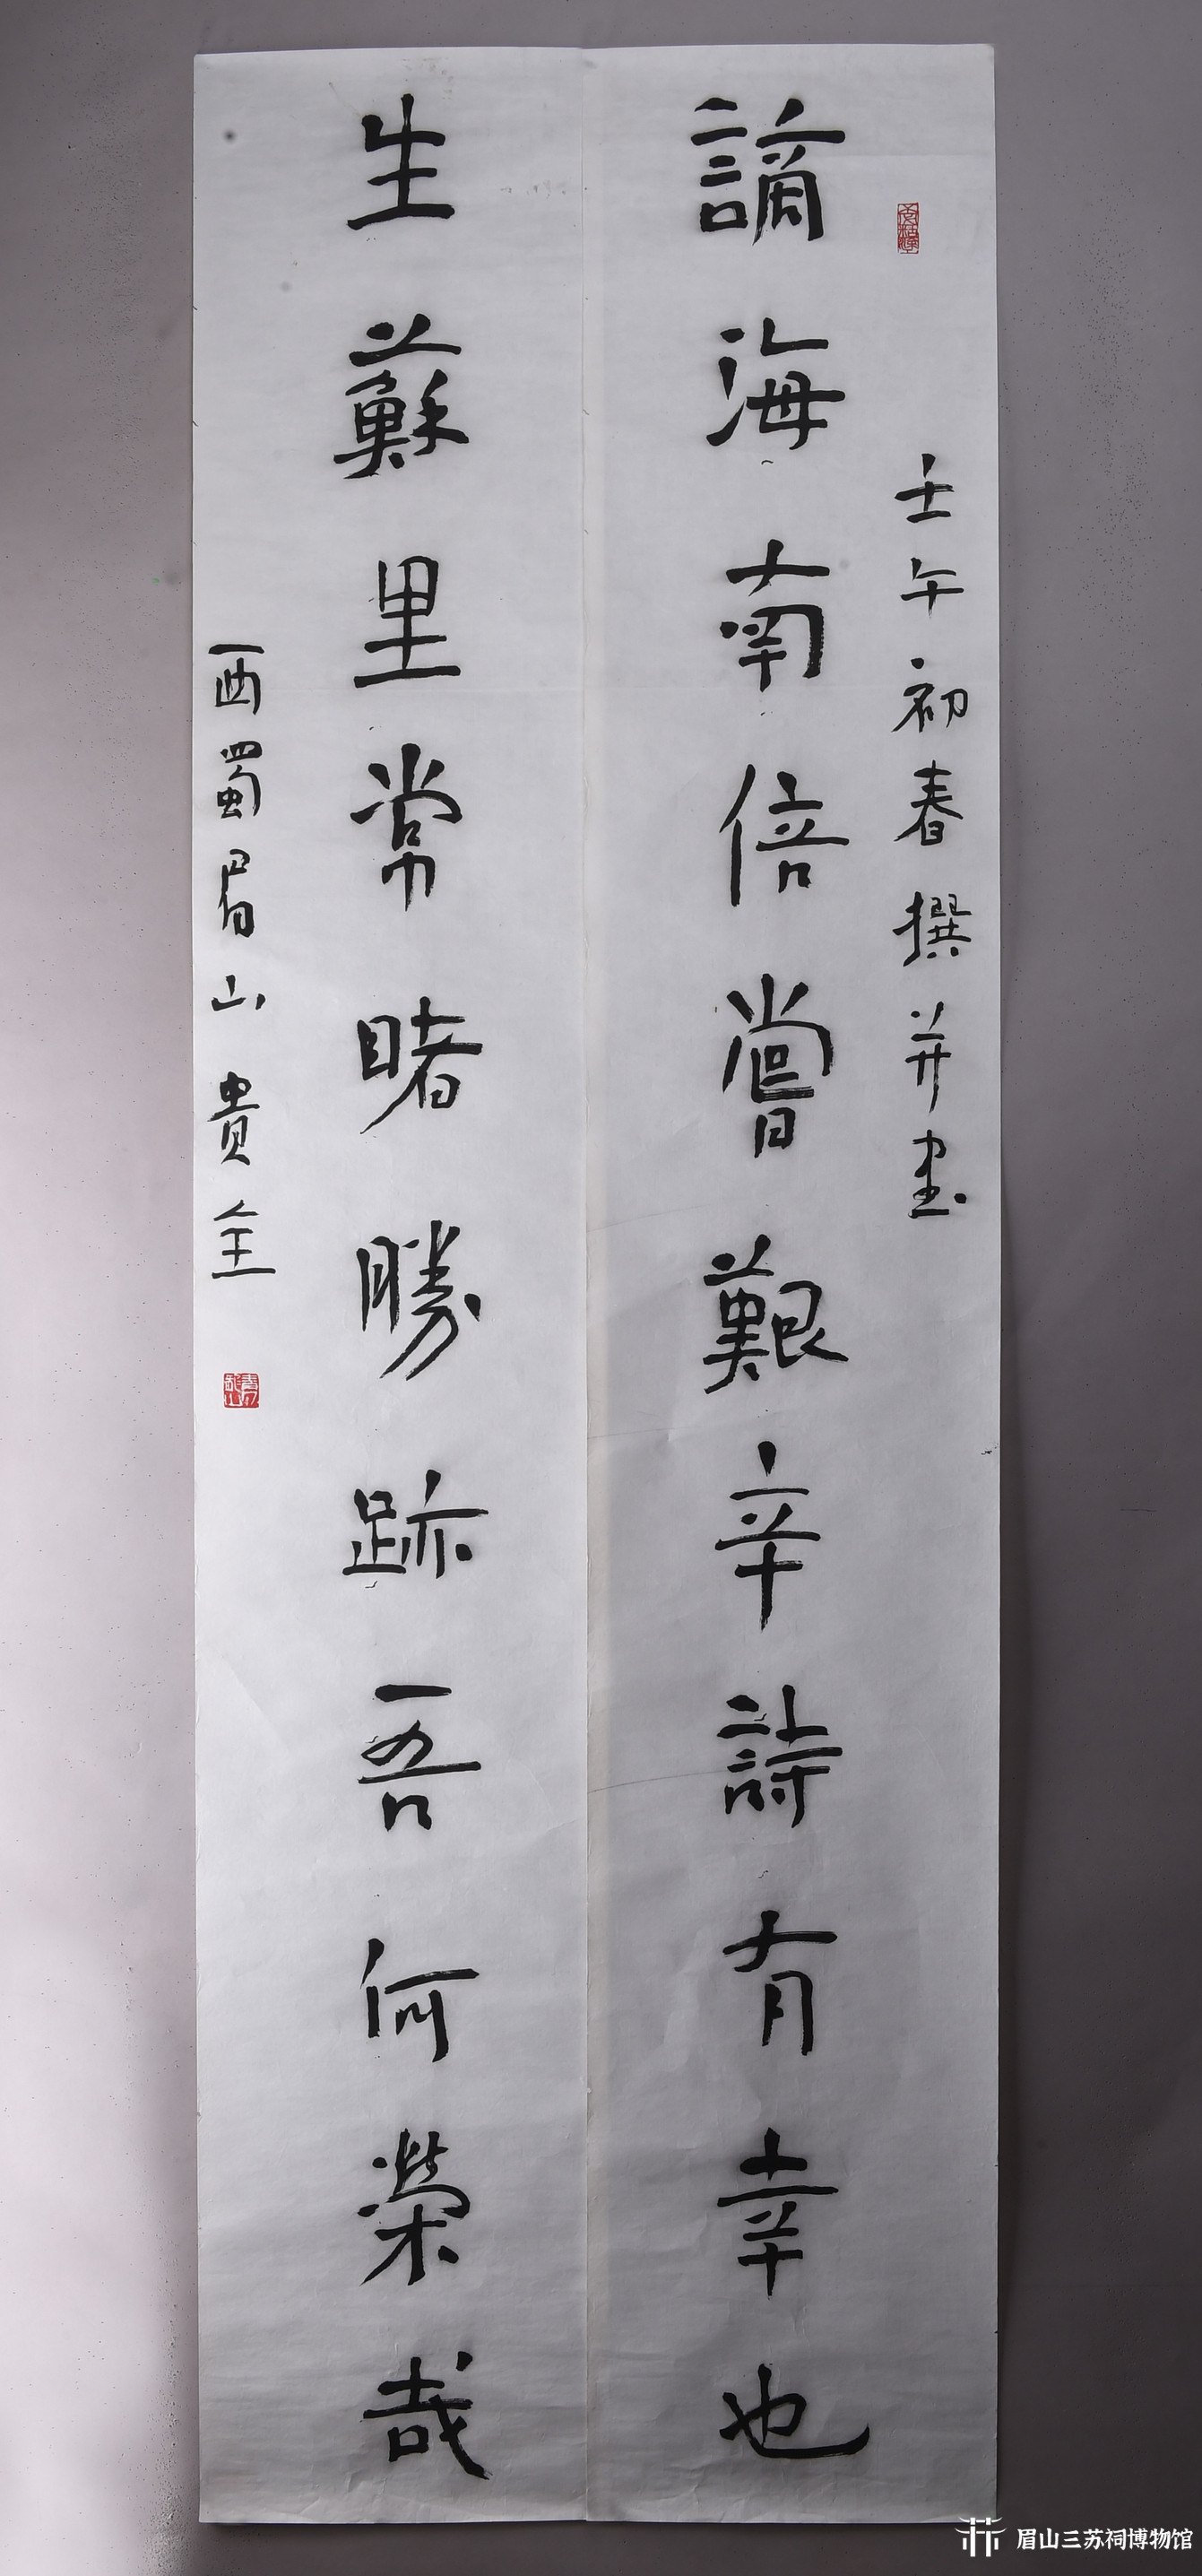 壬午初春撰并书
謫海南倍嘗艱辛詩有幸也
生蘇里常睹勝跡吾何榮哉
西蜀眉山贵全
眉山三苏祠博物馆